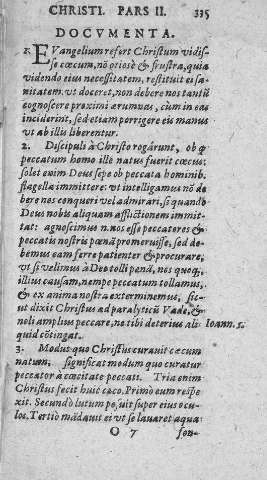 CHRISTI. PARS II. 335
DOCVMENTA.
1. EVangelium refert Christum vidis-
se cœcum, nō otiosè & frustra, quia
videndo eius necessitatem, restituit ei sa-
nitatem. vt doceret, non debere nos tantū
cognoscere proximi ærumnas, cùm in eas
inciderint, sed etiam porrigere eis manus
vt ab illis liberentur.
2. Discipuli à Christo rogârunt, ob q̇
peccatum homo ille natus fuerit cœcus;
solet enim Deus sepe ob peccata hominib.
flagella immittere: vt intelligamus nō de
bere nos conqueri vel admirari, si quando
Deus nobis aliquam afflictionem immit-
tat: agnoscimus n. nos esse peccatores &
peccatis nostris pœnā promeruisse, sed de-
bemus eam ferre patienter & procurare,
vt si velimus à Deo tolli pœnā, nos quoq;
illius causam, nempe peccatum tollamus,
& ex anima nostra exterminemus, sic-
ut dixit Christus ad paralyticū Vade, &
noli amplius peccare, ne tibi deterius ali- Ioann. 5.
quid cōtingat.
3. Modus quo Christus curauit cœcum
natum, significat modum quo curatur
peccator à cœcitate peccati. Tria enim
Christus fecit huic cœco. Primò eum respe
xit. Secundò lutum po, uit super eius ocu-
los. Tertiò mādauit ei vt se lauaret aqua
O 7 fon-